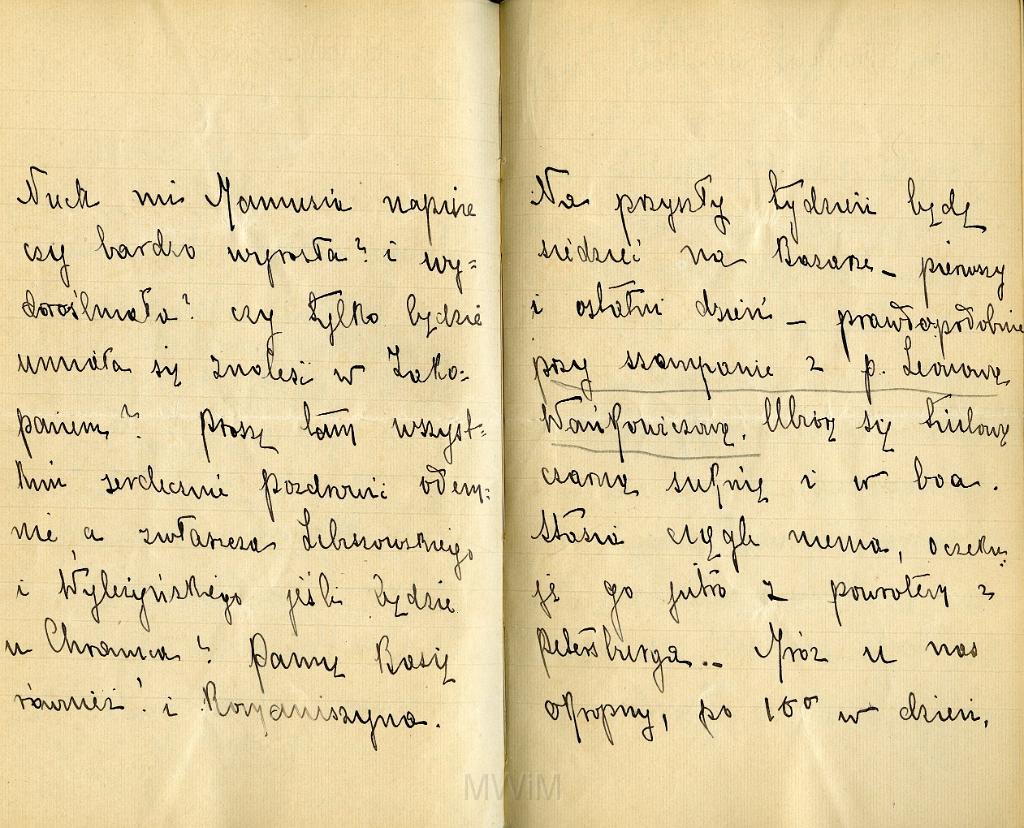 Niech mi Mamusia napisze
czy bardzo wyrosła? i wy=
doroślniała? czy tylko będzie
umiała się znaleść w Zako=
panem? Proszę tam wszyst=
kim serdecznie pozdrowić odem=
nie a zwłaszcza Librowskiego
i Wyleżyńskiego jeśli będzie
u Chramca? Panią Basię
również! i Romaniszyna.
Na przyszły tydzień będę
siedzieć na Bazarze – pierwszy
i ostatni dzień – prawdopodobnie
przy szampanie z p. Leonową
Wańkowiczową. Ubiorę się tiulową
czarną suknię i w boa.
Stasia ciągle niema, oczeku=
ję go jutro z powrotem z
Petersburga.. Mróz u nas
okropny, po 16° w dzień,
MWiM